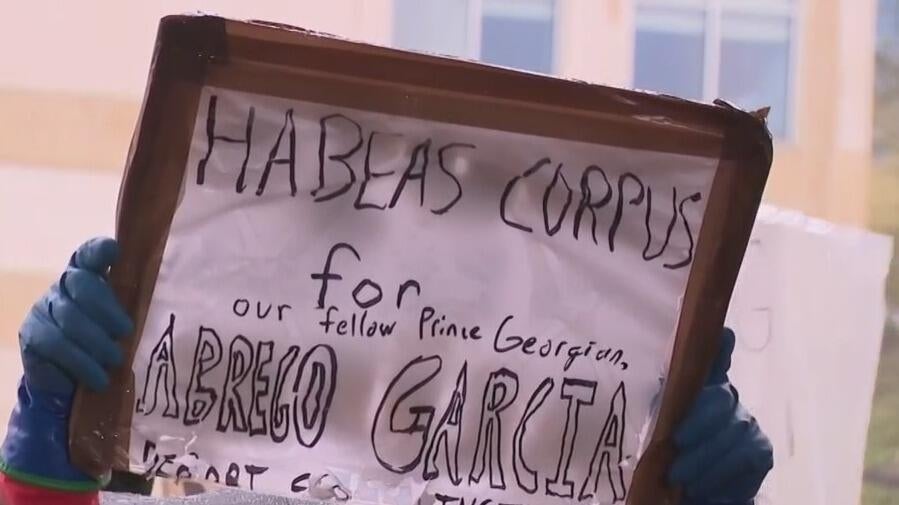 HABEAS CORPUS
for
our fellow Prince Georgian,
ABREGO GARCIA
DEPORT